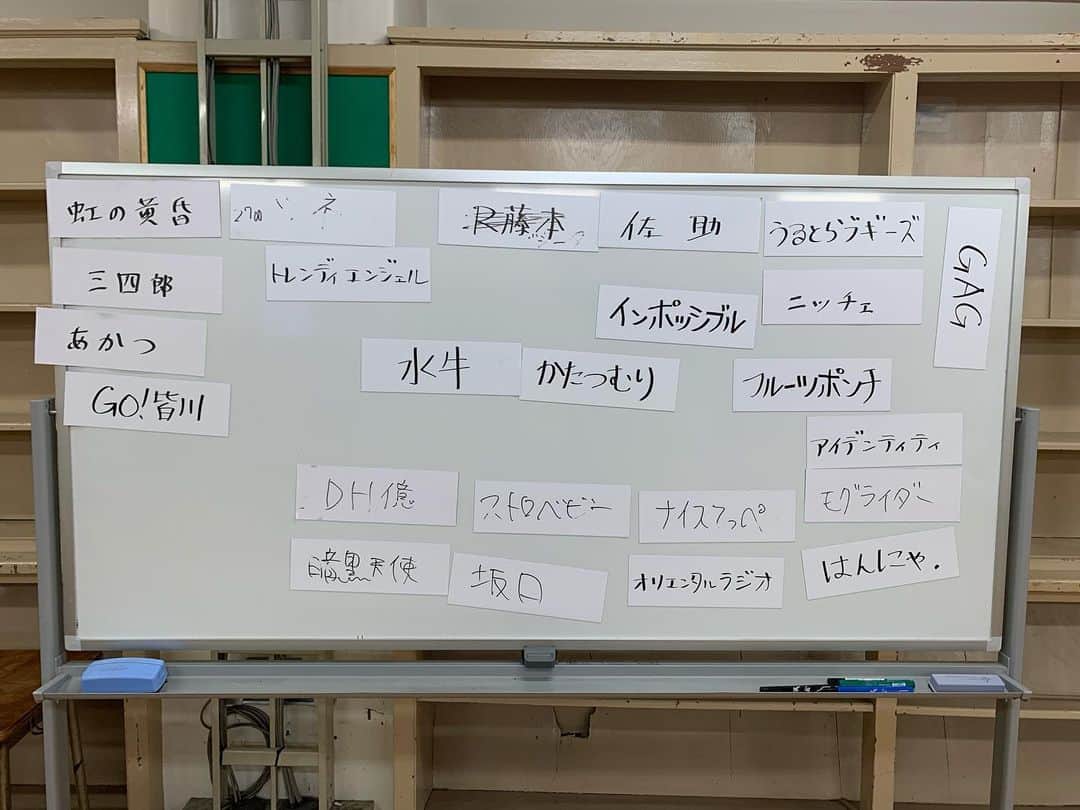 虹の黄昏
三四郎
あかつ
GO!皆川
2700
トレンディエンジェル
藤本
佐助
うるとらブギーズ
GAG
インポッシブル
ニッチェ
水牛
かたつむり
フルーツポンチ
アイデンティティ
モグライダー
DH億
ストロベビー
ナイスてっぺ
暗黒天使
坂口
オリエンタルラジオ
はんにゃ.